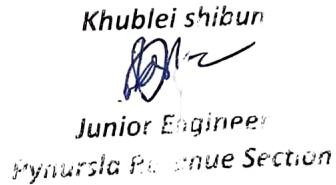 Khublei shibun
Junior Engineer
Pynursla Revenue Section